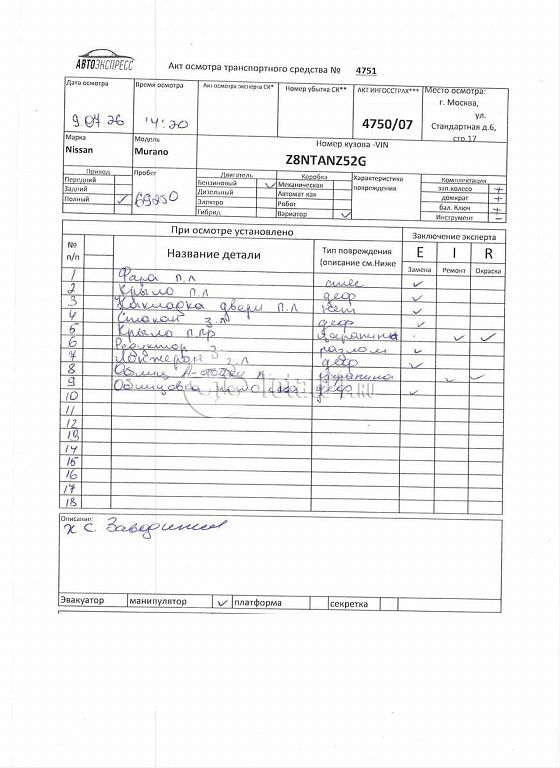 АВТОЭКСПРЕСС
Акт осмотра транспортного средства № 4751
Дата осмотра
Время осмотра
Акт осмотра эксперта СК*
Номер убытка СК**
АКТ ИНГОССТРАХ***
Место осмотра:
г. Москва,
ул.
Стандартная д.6,
стр.17
9 07 26
14:20
4750/07
Марка
Модель
Номер кузова -VIN
Nissan
Murano
Z8NTANZ52G
Привод
Пробег
Двигатель
Коробка
Характеристика повреждения
Комплектация
Передний
Бензиновый ✓
Механическая
зап.колесо +
Задний
Дизельный
Автомат кая
домкрат +
Полный ✓
69250
Электро
Робот
бал. Ключ +
Гибрид
Вариатор ✓
Инструмент –
При осмотре установлено
Заключение эксперта
№ п/п
Название детали
Тип повреждения (описание см.Ниже
E I R
Замена Ремонт Окраска
1 Фара п.л ✓
2 Крыло п.л деф ✓
3 Накладка двери п.л нет ✓
4 Стакан з.л деф ✓
5 Крыло п.пр царапина ✓ ✓
6 Редуктор з. разлом ✓
7 Лонжерон з.л деф ✓
8 Облиц л царапина ✓ ✓
9 Облицовка деф ✓
10
11
12
13
14
15
16
17
18
Описание:
х с.
Эвакуатор манипулятор ✓ платформа секретка